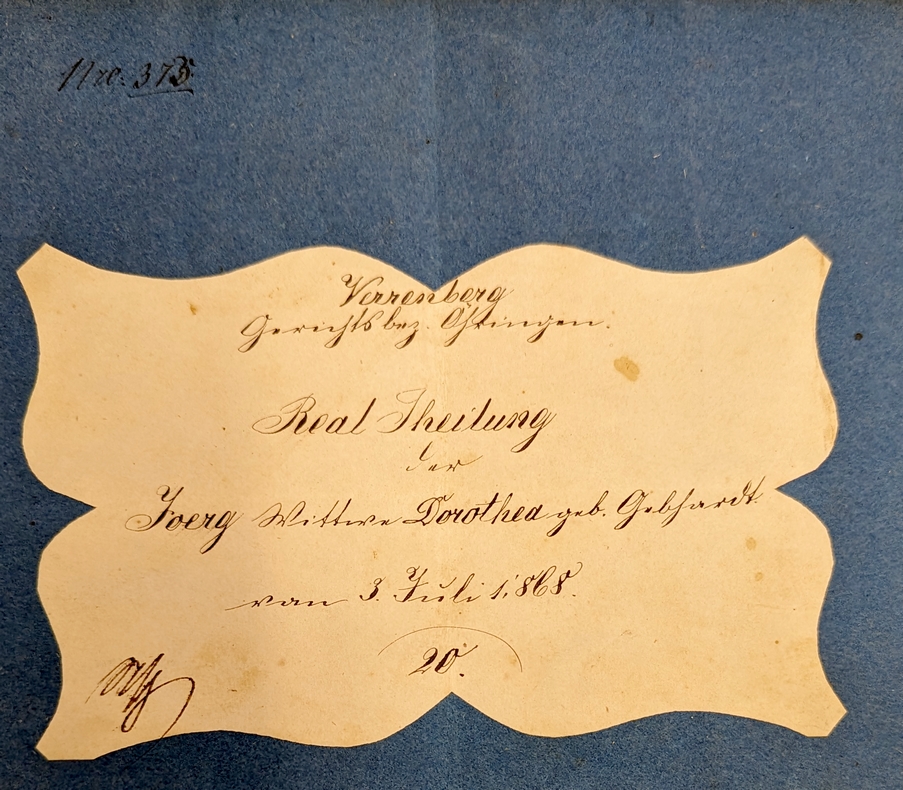 Nro. 375.
Verrenberg
Gerichtsbez. Öhringen.
Real Theilung
der
Joerg Wittwe Dorothea geb. Gebhardt.
vom 3. Juli 1868.
20.